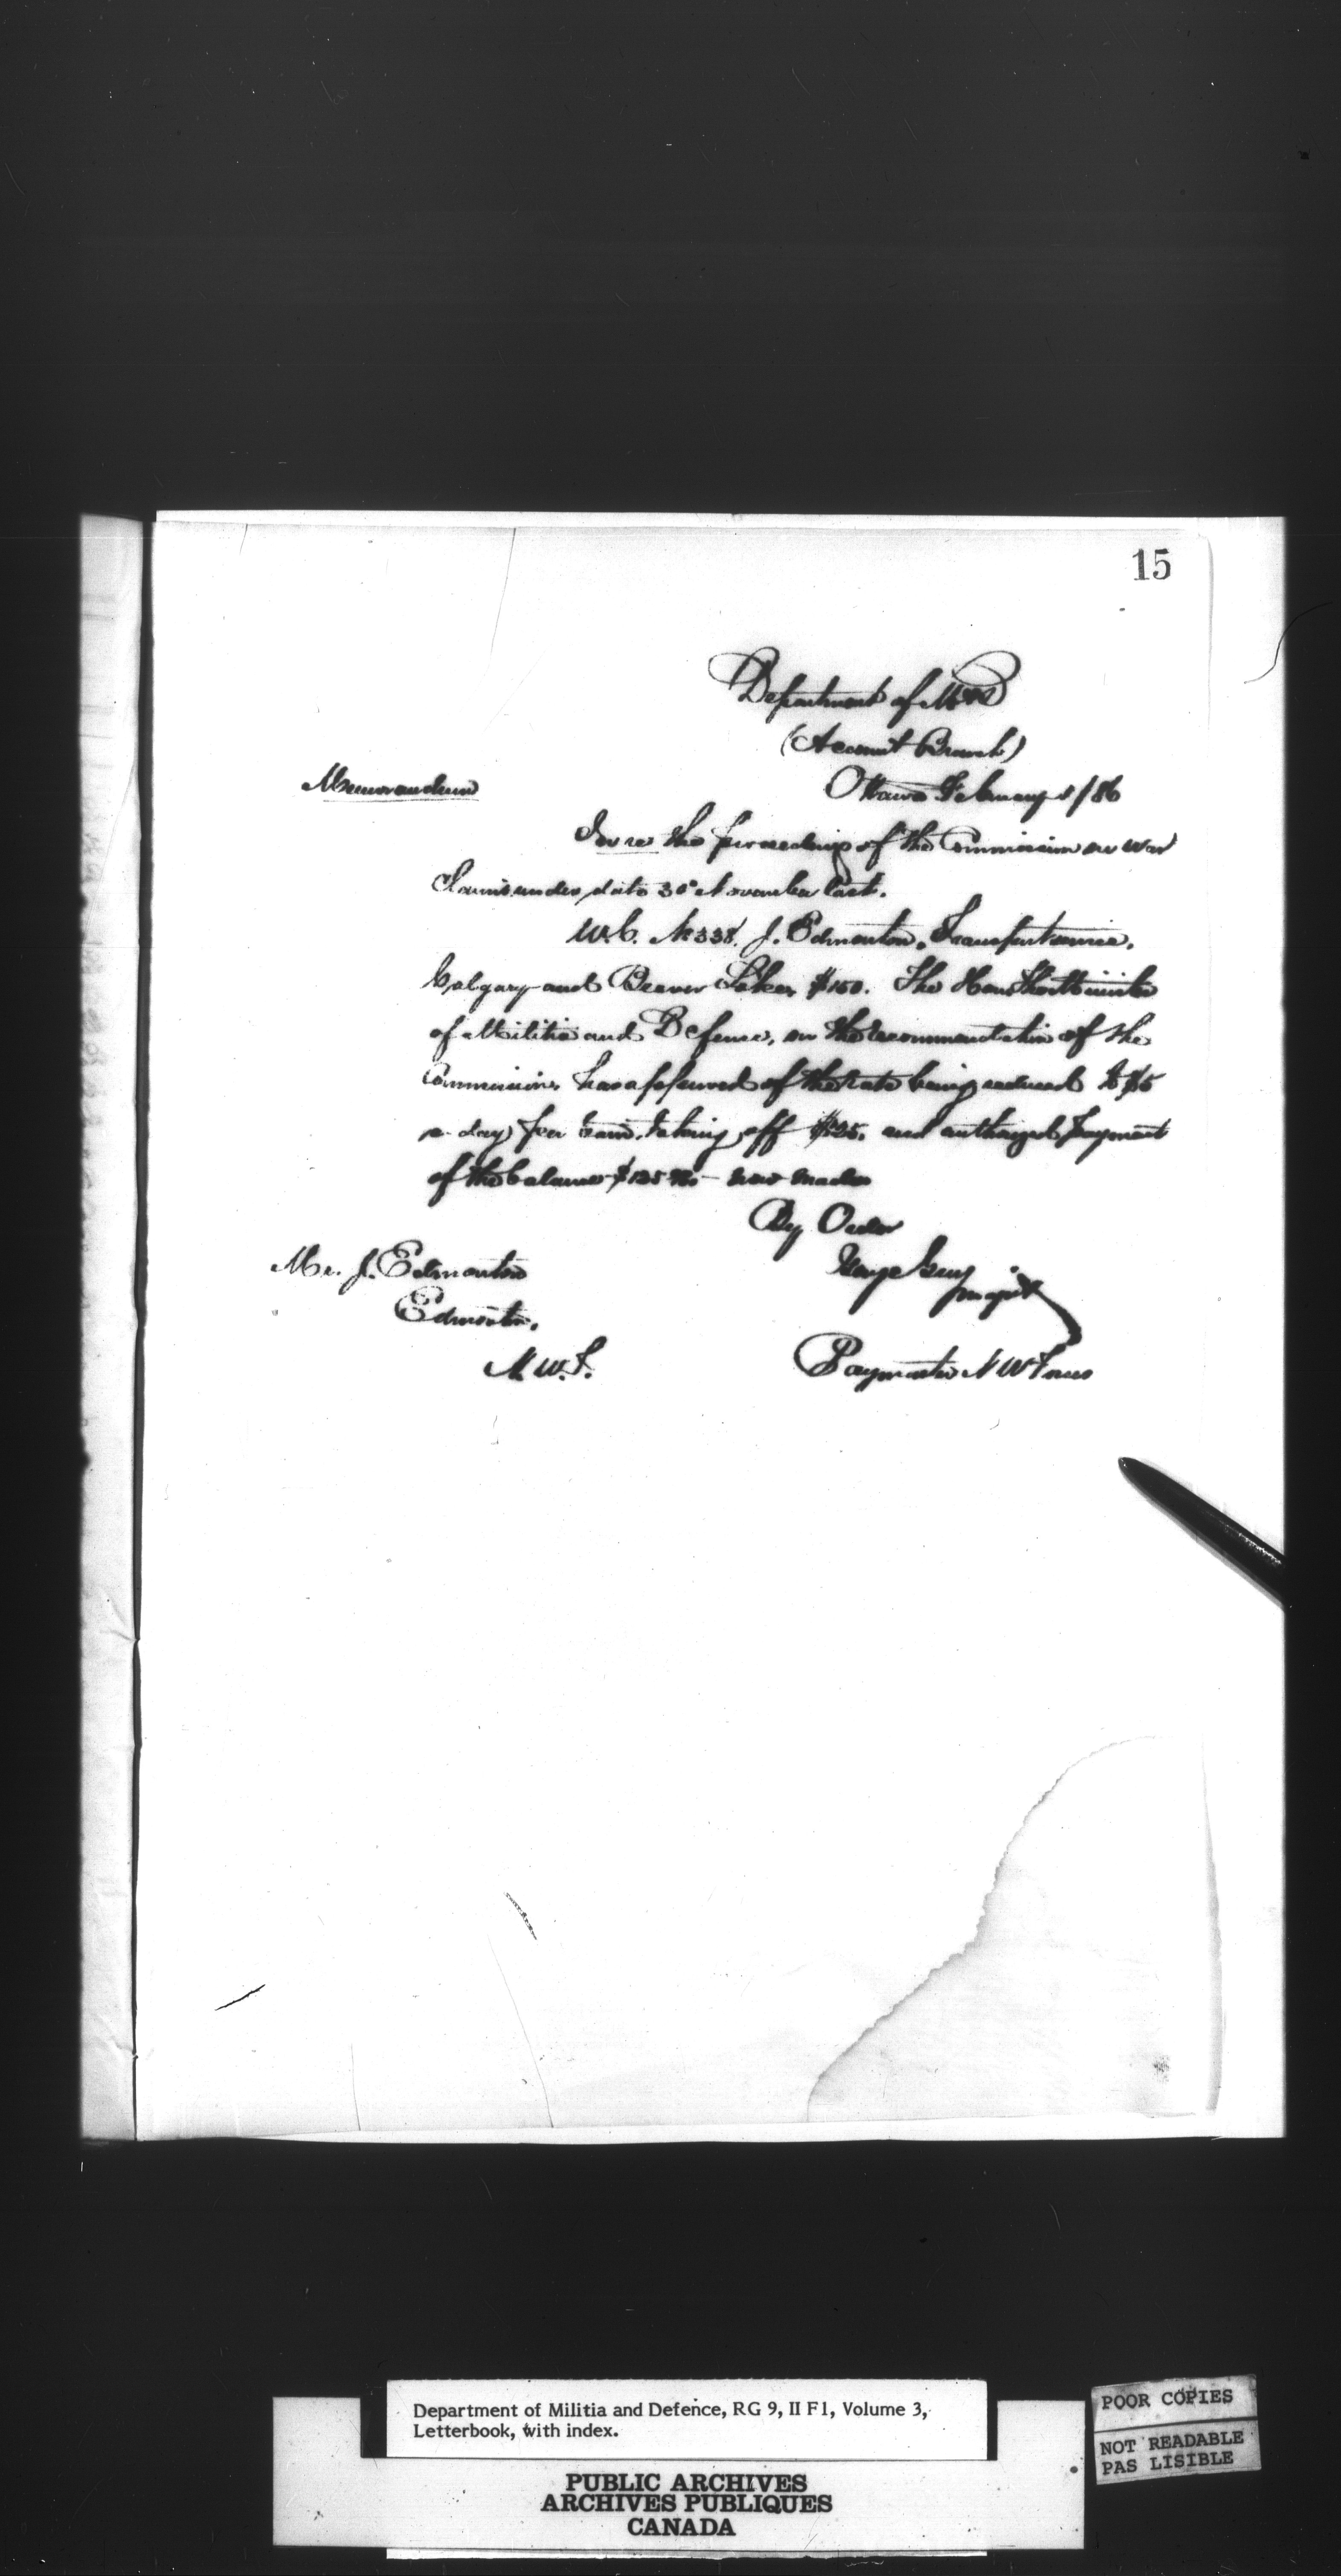 15
Department of M & D
(Account Branch)
Memorandum
Ottawa February /86
In re the proceedings of the Commission on War
Claims under date 30th November last.
W.C. No 338. J. Edmonton, Transport service,
Calgary and Beaver Lake, $150. The Honble the Minister
of Militia and Defence, on the recommendation of the
Commission, has approved of the rate being reduced to $5
a day per team, taking off $25. and authorized payment
of the balance $125 now made
By Order
Mr. J. Edmonton
Edmonton,
N.W.T.
George Guy
Major
Paymaster N W Forces
Department of Militia and Defence, RG 9, II F1, Volume 3,
Letterbook, with index.
PUBLIC ARCHIVES
ARCHIVES PUBLIQUES
CANADA
POOR COPIES
NOT READABLE
PAS LISIBLE